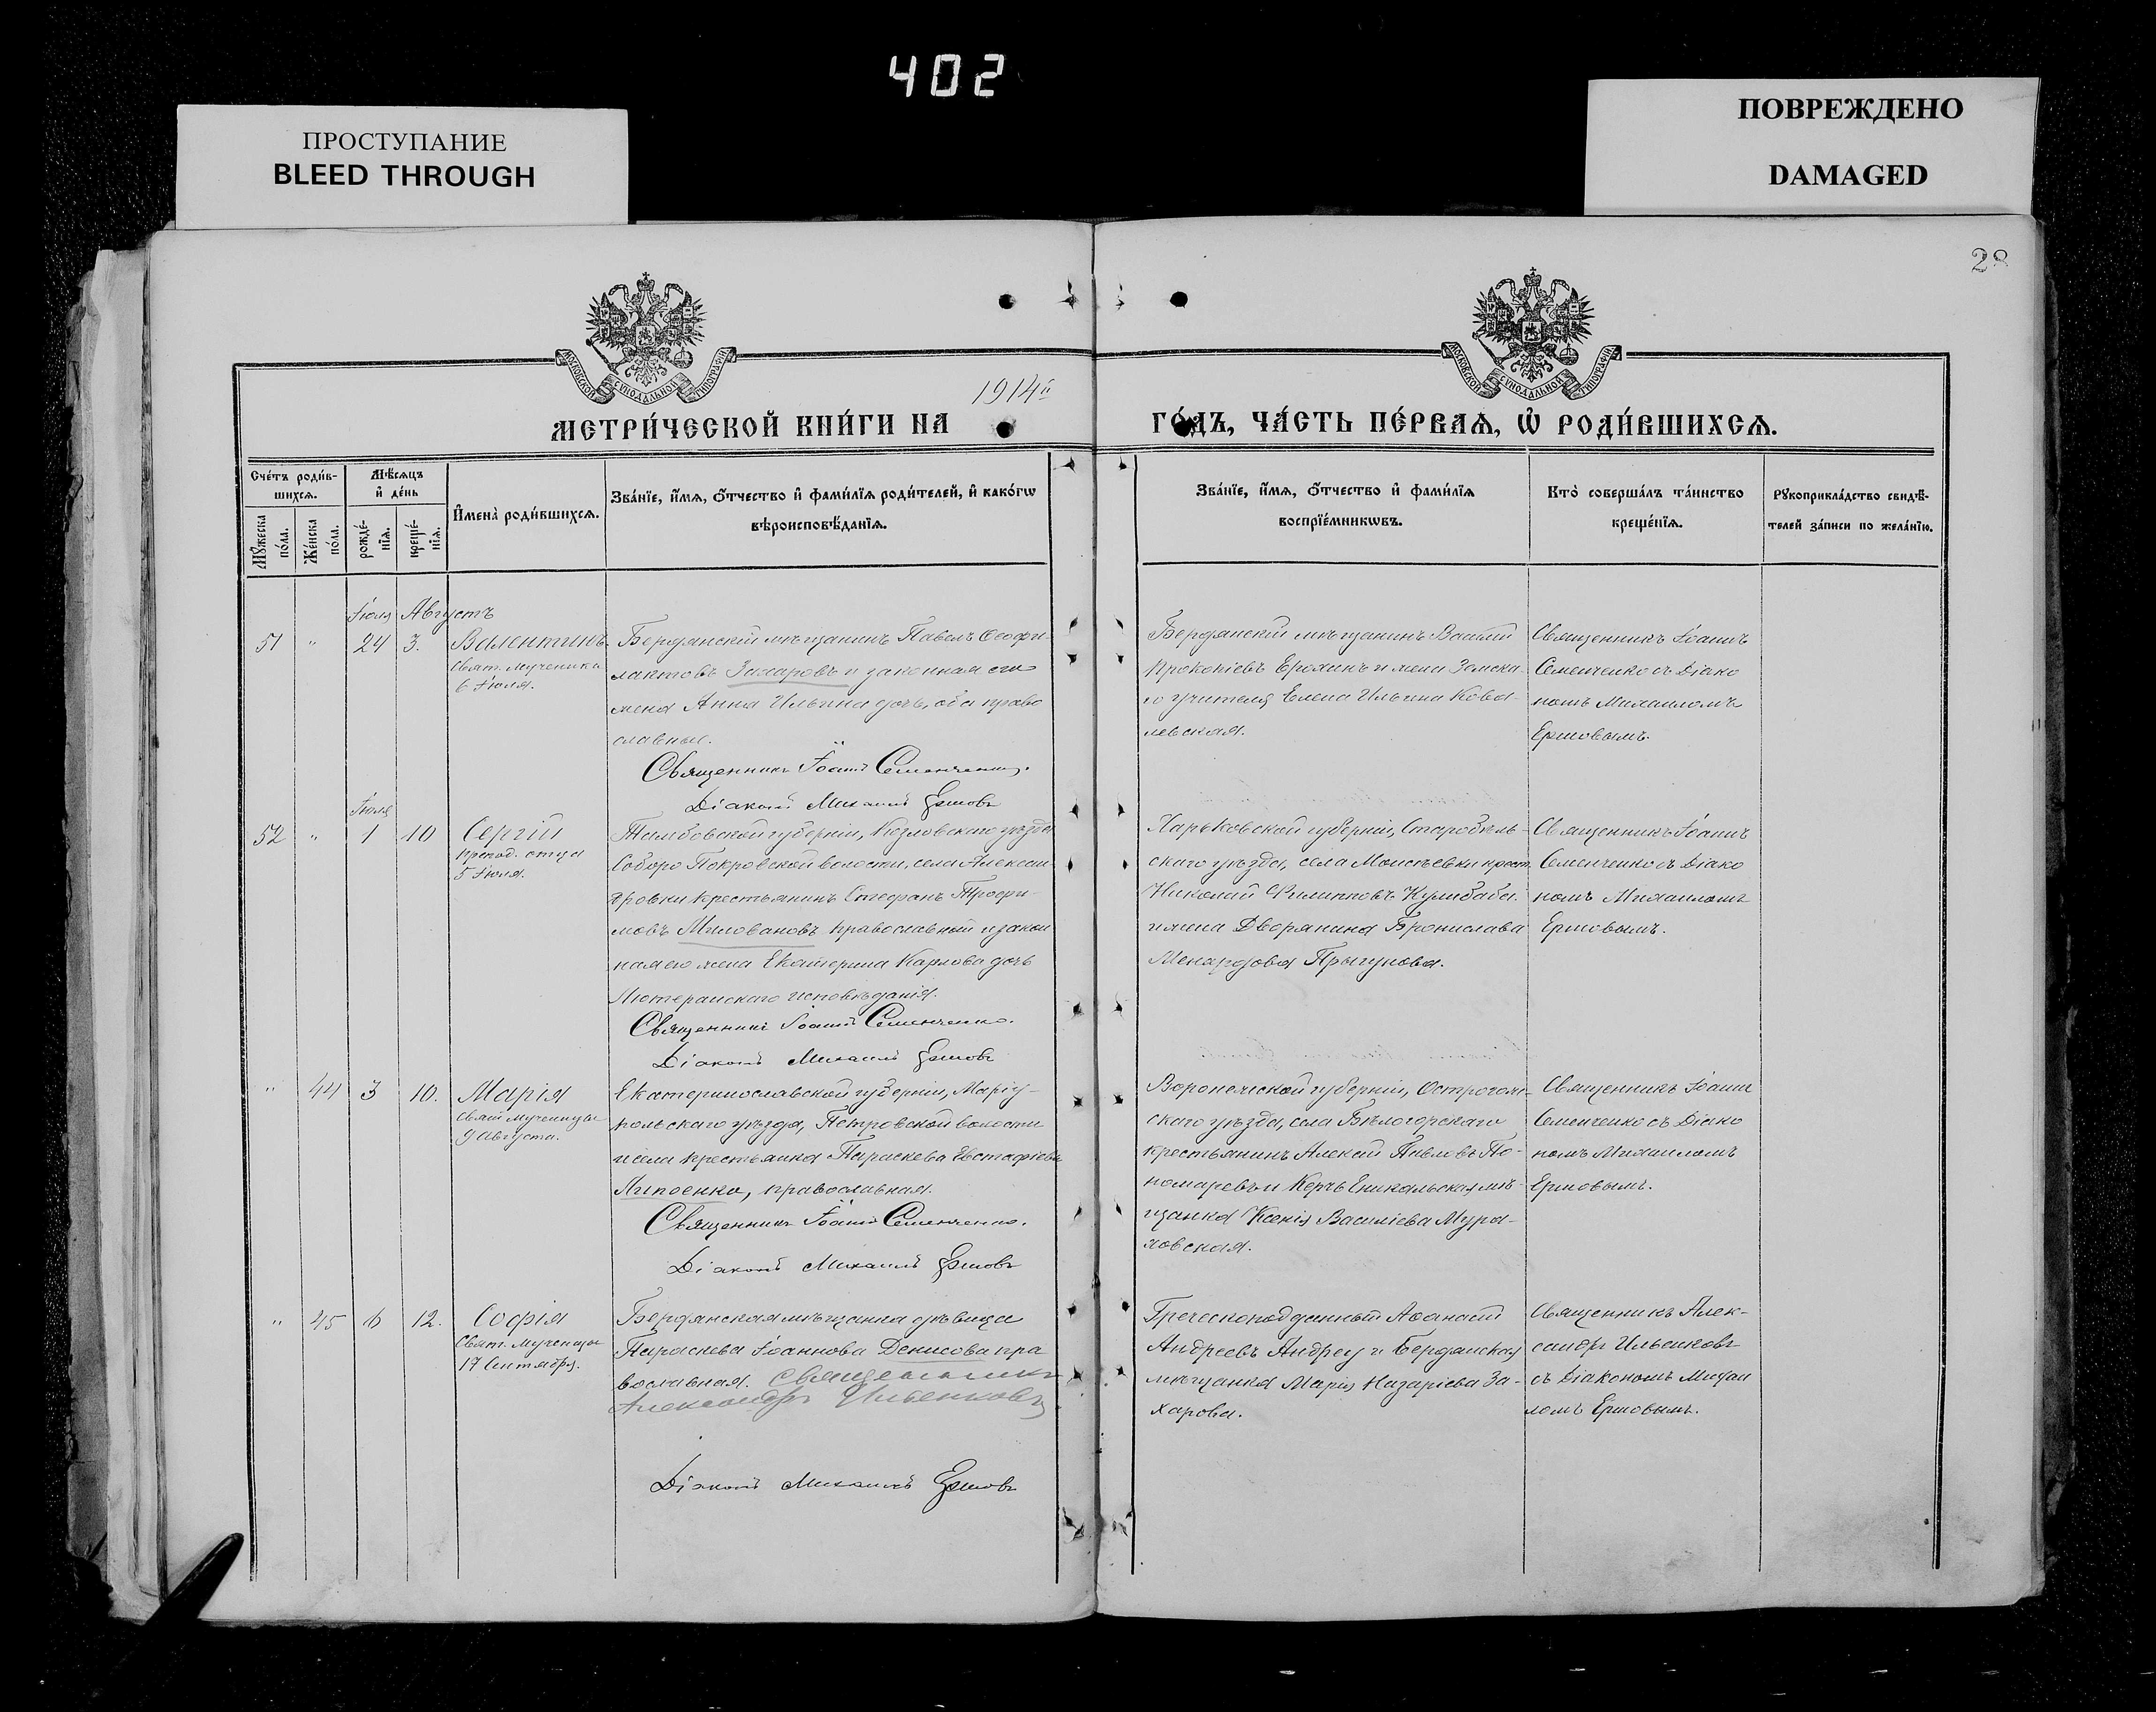 402
ПРОСТУПАНИЕ
BLEED THROUGH
ПОВРЕЖДЕНО
DAMAGED
28
МОСКОВСКОЙ СѴНОДАЛЬНОЙ ТИПОГРАФІИ
МОСКОВСКОЙ СѴНОДАЛЬНОЙ ТИПОГРАФІИ
1914й
МЕТРИ́ЧЕСКОЙ КНИ́ГИ НА
ГО́ДЪ, ЧА́СТЬ ПЕ́РВАѦ, Ѡ҆ РОДИ́ВШИХСѦ.
Сче́тъ роди́в-
шихсѧ.
Мꙋжеска по́ла.
Же́нска по́ла.
Мѣ́сѧцъ и҆ де́нь
рожде́-нїѧ.
креще́-нїѧ.
И҆мена̀ роди́вшихсѧ.
Зва́нїе, и҆́мѧ, ѻ҆́тчество и҆ фами́лїѧ роди́телей, и҆ како́гѡ
вѣроисповѣ́данїѧ.
Зва́нїе, и҆́мѧ, ѻ҆́тчество и҆ фами́лїѧ
воспрїе́мникѡвъ.
Кто̀ соверша́лъ та́инство
креще́нїѧ.
Рꙋкоприкла́дство свидѣ́-
телей за́писи по жела́нїю.
Іюля Августъ
51 " 24 3. Валентинъ.
Свят. мученика
6 Іюля.
Бердянскій мѣщанинъ Павелъ Ѳеофи-
лактовъ Захаровъ и законная его
жена Анна Ильина дочь, оба право
славные.
Священникъ Іоаннъ Семенченко.
Діаконъ Михаилъ Ершовъ
Бердянскій мѣщанинъ Василій
Прокопіевъ Ерохинъ и жена Земска-
го учителя Елена Ильина Кова-
левская.
Священникъ Іоаннъ
Семенченко съ Діако
номъ Михаиломъ
Ершовымъ.
Іюля
52 " 1 10 Сергій
препод. отца
5 Іюля.
Тамбовской губерніи, Козловскаго уѣзда
Соборо Покровской волости, села Алексан-
дровки крестьянинъ Стефанъ Трофи-
мовъ Миловановъ православный и закон
ная его жена Екатерина Карлова дочь
Лютеранскаго исповѣданія.
Священникъ Іоаннъ Семенченко.
Діаконъ Михаилъ Ершовъ
Харьковской губерніи, Старобѣль-
скаго уѣзда, села Моисѣевки крест.
Николай Филипповъ Кулибаба
и жена Дворянина Бронислава
Менардова Прыгунова.
Священникъ Іоаннъ
Семенченко съ Діако
номъ Михаиломъ
Ершовымъ.
" 44 3 10. Марія
Свят мученицы
9 Августа.
Екатеринославской губерніи, Маріу-
польскаго уѣзда, Петровской волости
и села крестьянка Параскева Евстафіева
Липоенко, православная.
Священникъ Іоаннъ Семенченко.
Діаконъ Михаилъ Ершовъ
Воронежской губерніи, Острогож-
скаго уѣзда, села Бѣлогорскаго
крестьянинъ Алексій Павловъ По-
номаревъ и Керчь Еникальская мѣ-
щанка Ксенія Василіева Мура-
ховская.
Священникъ Іоаннъ
Семенченко съ Діако
номъ Михаиломъ
Ершовымъ.
" 45 6 12. Софія
Свят. Мученицы
17 Сентября.
Бердянская мѣщанка дѣвица
Параскева Іоаннова Денисова пра
вославная. Священникъ
Александръ Ильенковъ
Діаконъ Михаилъ Ершовъ
Греческоподданный Аѳанасій
Андреевъ Андреу и Бердянская
мѣщанка Марія Назаріева За-
харова.
Священникъ Алек-
сандръ Ильенковъ
съ Діакономъ Михаи
ломъ Ершовымъ.